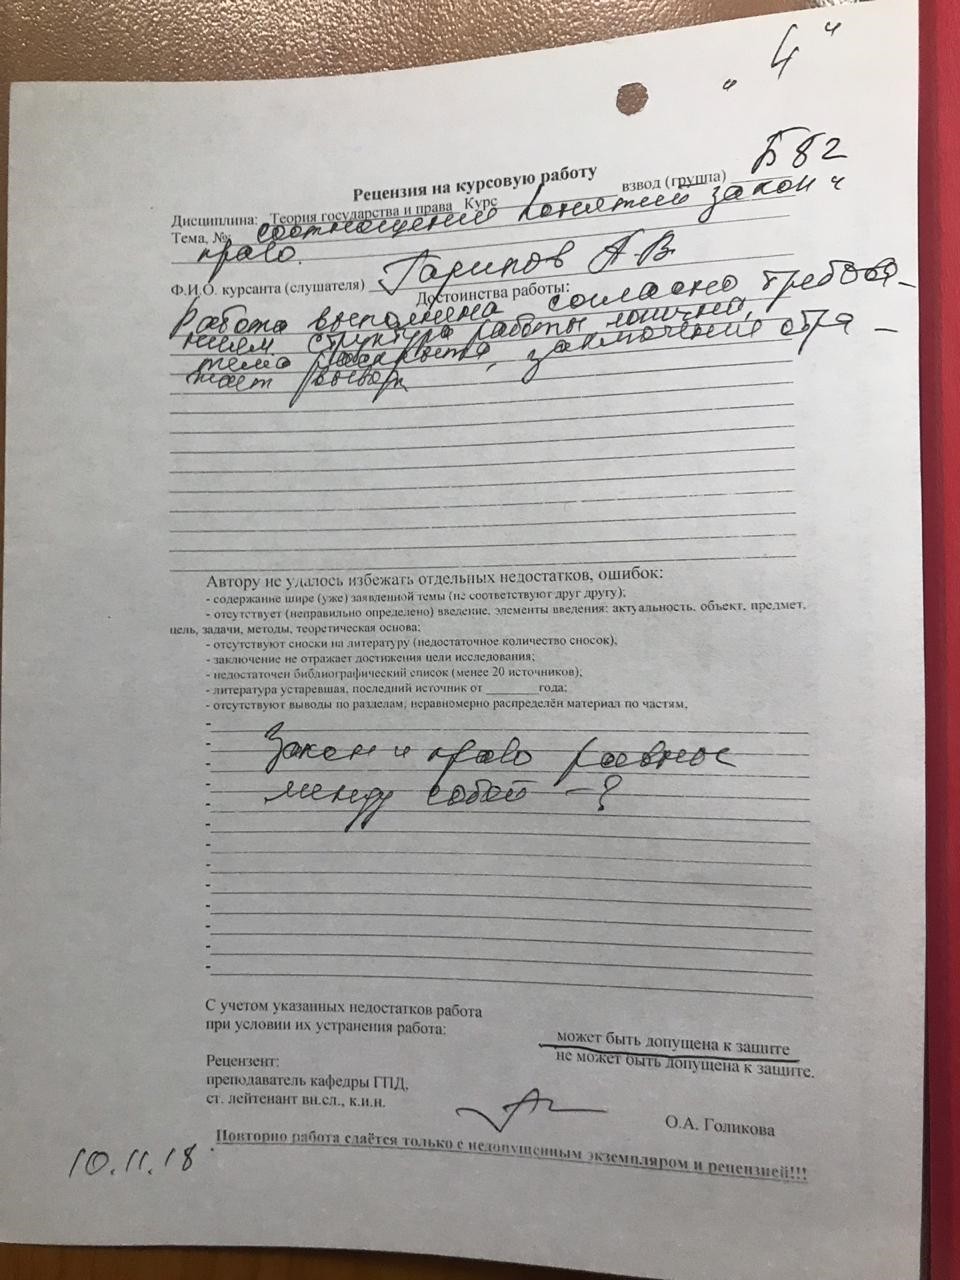 „4“
Рецензия на курсовую работу
Дисциплина: Теория государства и права Курс взвод (группа) Б82
Тема, №: соотношение понятий закон и
право.
Ф.И.О. курсанта (слушателя) Гарипов А.В
Достоинства работы:
Работа выполнена согласно требова-
ниям структура работы логична,
тема раскрыта, заключение отра-
жает
Автору не удалось избежать отдельных недостатков, ошибок:
- содержание шире (уже) заявленной темы (не соответствуют друг другу);
- отсутствует (неправильно определено) введение, элементы введения: актуальность, объект, предмет,
цель, задачи, методы, теоретическая основа;
- отсутствуют сноски на литературу (недостаточное количество сносок);
- заключение не отражает достижения цели исследования;
- недостаточен библиографический список (менее 20 источников);
- литература устаревшая, последний источник от ________ года;
- отсутствуют выводы по разделам, неравномерно распределён материал по частям,
Закон и право равные
между собой -?
С учетом указанных недостатков работа
при условии их устранения работа:
может быть допущена к защите
не может быть допущена к защите.
Рецензент:
преподаватель кафедры ГПД,
ст. лейтенант вн.сл., к.и.н.
О.А. Голикова
Повторно работа сдаётся только с недопущенным экземпляром и рецензией!!!
10.11.18